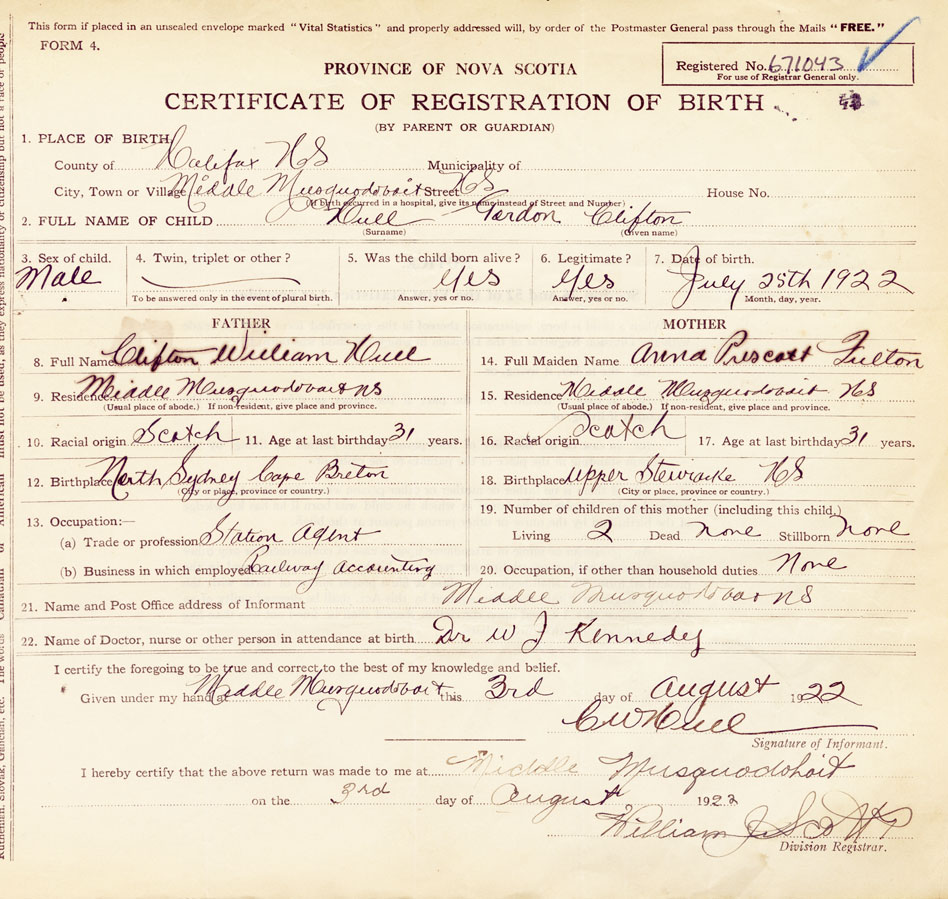 This form if placed in an unsealed envelope marked "Vital Statistics" and properly addressed will, by order of the Postmaster General pass through the Mails "FREE."
FORM 4.
Registered No. 671043
For use of Registrar General only.
PROVINCE OF NOVA SCOTIA
CERTIFICATE OF REGISTRATION OF BIRTH
(BY PARENT OR GUARDIAN)
1. PLACE OF BIRTH
County of Halifax NS Municipality of
City, Town or Village Middle Musquodoboit Street NS House No.
(If birth occurred in a hospital, give its name instead of Street and Number)
2. FULL NAME OF CHILD Hull Gordon Clifton
(Surname) (Given name)
3. Sex of child. 4. Twin, triplet or other? 5. Was the child born alive? 6. Legitimate? 7. Date of birth.
Male Yes Yes July 25th 1922
To be answered only in the event of plural birth. Answer, yes or no. Answer, yes or no. Month, day, year.
FATHER MOTHER
8. Full Name Clifton William Hull 14. Full Maiden Name Anna Prescott Fulton
9. Residence Middle Musquodoboit NS 15. Residence Middle Musquodoboit NS
(Usual place of abode.) If non-resident, give place and province. (Usual place of abode.) If non-resident, give place and province.
10. Racial origin Scotch 11. Age at last birthday 31 years. 16. Racial origin Scotch 17. Age at last birthday 31 years.
12. Birthplace North Sydney Cape Breton 18. Birthplace Upper Stewiacke NS
(City or place, province or country.) (City or place, province or country.)
13. Occupation:— 19. Number of children of this mother (including this child.)
(a) Trade or profession Station Agent Living 2 Dead None Stillborn None
(b) Business in which employed Railway Accounting 20. Occupation, if other than household duties None
21. Name and Post Office address of Informant Middle Musquodoboit NS
22. Name of Doctor, nurse or other person in attendance at birth Dr W J Kennedy
I certify the foregoing to be true and correct to the best of my knowledge and belief.
Given under my hand at Middle Musquodoboit this 3rd day of August 1922
C W Hull
Signature of Informant.
I hereby certify that the above return was made to me at Middle Musquodoboit
on the 3rd day of August 1922
William J Scott
Division Registrar.